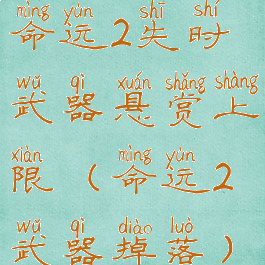 mìng yùn shī shí
命运2失时
wǔ qì xuán shǎng shàng
武器悬赏上
xiàn mìng yùn
限(命运2
wǔ qì diào luò
武器掉落)